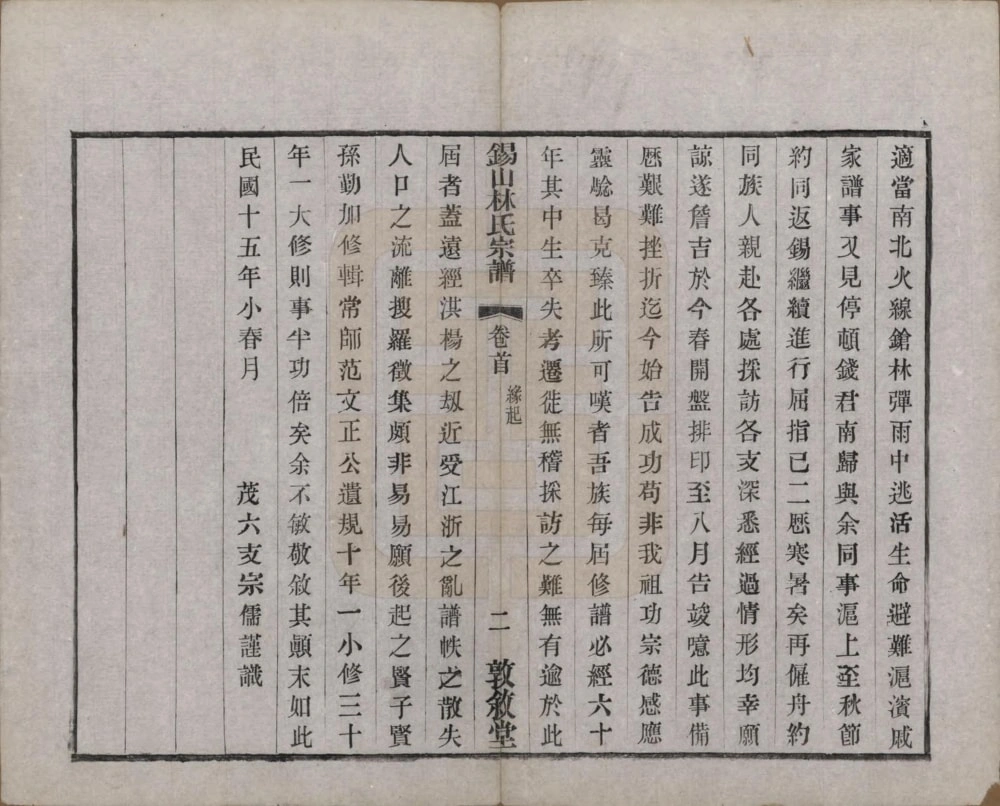 適當南北火線鎗林彈雨中逃活生命避難滬濱戚
家譜事又見停頓錢君南歸與余同事滬上至秋節
約同返錫繼續進行屈指已二厯寒暑矣再僱舟約
同族人親赴各處採訪各支深悉經過情形均幸願
諒遂詹吉於今春開盤排印至八月告竣噫此事備
厯艱難挫折迄今始告成功苟非我祖功宗德感應
靈騐曷克臻此所可嘆者吾族每屆修譜必經六十
年其中生卒失考遷徙無稽採訪之難無有逾於此
錫山林氏宗譜 卷首 緣起 二 敦敘堂
屆者蓋遠經淇楊之刼近受江浙之亂譜帙之散失
人口之流離搜羅徵集頗非易易願後起之賢子賢
孫勤加修輯常師范文正公遺規十年一小修三十
年一大修則事半功倍矣余不敏敬敘其顛末如此
民國十五年小春月 茂六支宗儒謹識